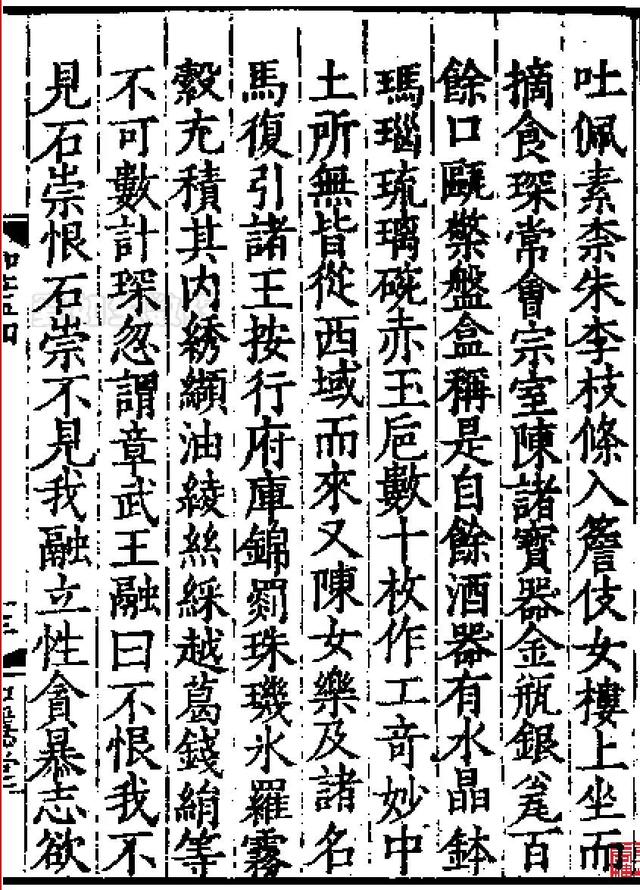 吐佩素柰朱李枝條入簷伎女樓上坐而
摘食琛常會宗室陳諸寶器金瓶銀瓮百
餘口甌檠盤盒稱是自餘酒器有水晶鉢
瑪瑙琉璃碗赤玉巵數十枚作工奇妙中
土所無皆從西域而來又陳女樂及諸名
馬復引諸王按行府庫錦罽珠璣氷羅霧
縠充積其内綉纈油綾絲綵越葛錢絹等
不可數計琛忽謂章武王融曰不恨我不
見石崇恨石崇不見我融立性貪暴志欲